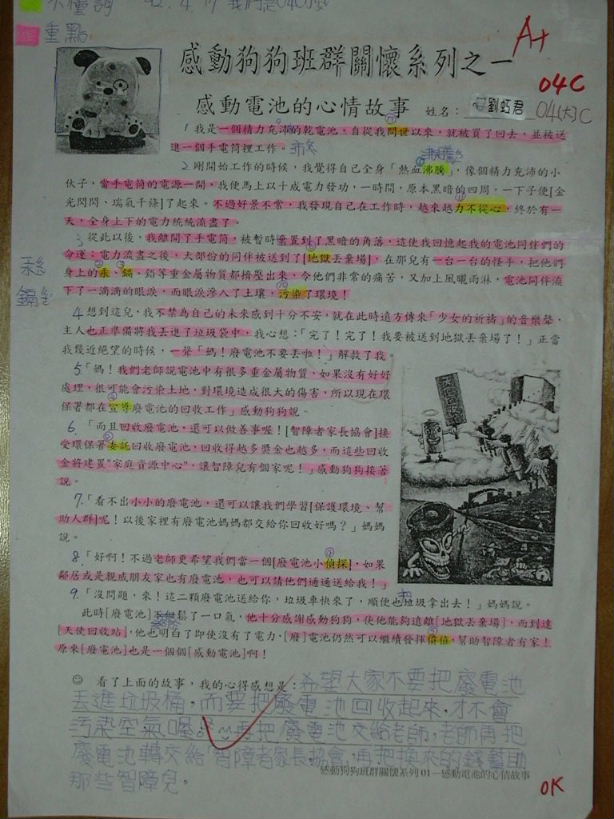 不懂詞 92.4.17
重點
A+
感動狗狗班群關懷系列之一
04C
感動電池的心情故事 姓名： 劉蛪君 04(大)C
1 我是一個精力充沛的乾電池，自從我問世以來，就被買了回去，並被送
進一個手電筒裡工作。
2 剛開始工作的時候，我覺得自己全身「熱血沸騰」，像個精力充沛的小
伙子，當手電筒的電源一開，我便馬上以十成電力發功，一時間，原本黑暗的四周，一下子便[金
光閃閃、瑞氣千條]了起來。不過好景不常，我發現自己在工作時，越來越力不從心，終於有一
天，全身上下的電力統統流盡了。
3 從此以後，我離開了手電筒，被暫時棄置到了黑暗的角落，這使我回憶起我的電池同伴們的
命運：電力流盡之後，大部份的同伴被送到了[地獄丟棄場]，在那兒有一台一台的怪手，把他們
身上的汞、鎘、鉛等重金屬物質都擠壓出來，令他們非常的痛苦，又加上風曬雨淋，電池同伴流
下了一滴滴的眼淚，而眼淚滲入了土壤，污染了環境！
汞
鎘
4 想到這兒，我不禁為自己的未來感到十分不安，就在此時遠方傳來「少女的祈禱」的音樂聲，
主人也正準備將我丟進了垃圾袋中，我心想：「完了！完了！我要被送到地獄丟棄場了！」正當
我幾近絕望的時候，一聲「媽！廢電池不要丟啦！」解救了我。
5「媽！我們老師說電池中有很多重金屬物質，如果沒有好好
處理，很可能會污染土地，對環境造成很大的傷害，所以現在環
保署都在宣導廢電池的回收工作」感動狗狗說。
6.「而且回收廢電池，還可以做善事喔！[智障者家長協會]接
受環保署委託回收廢電池，回收得越多獎金也越多，而這些回收
金將建置"家庭資源中心"，讓智障兒有個家呢！」感動狗狗接著
說。
7.「看不出小小的廢電池，還可以讓我們學習[保護環境、幫
助人群]呢！以後家裡有廢電池媽媽都交給你回收好嗎？」媽媽
說。
8.「好啊！不過老師更希望我們當一個[廢電池小偵探]，如果
鄰居或是親戚朋友家也有廢電池，也可以請他們通通送給我！」
9.「沒問題，來！這二顆廢電池送給你，垃圾車快來了，順便也把垃圾拿出去！」媽媽說。
此時[廢電池]鬆了一口氣，他十分感謝感動狗狗，使他能夠遠離[地獄丟棄場]，而到達
[天使回收站]，他也明白了即使沒有了電力，[廢]電池仍然可以繼續發揮價值，幫助智障者有家！
原來[廢電池]也是一個個[感動電池]啊！
☺ 看了上面的故事，我的心得感想是：希望大家不要把廢電池
丟進垃圾桶，而要把廢電池回收起來，才不會
污染空氣喔！要把廢電池交給老師，老師再把
廢電池轉交給智障者家長協會，再把換來的錢幫助
那些智障兒。
感動狗狗班群關懷系列01—感動電池的心情故事
OK